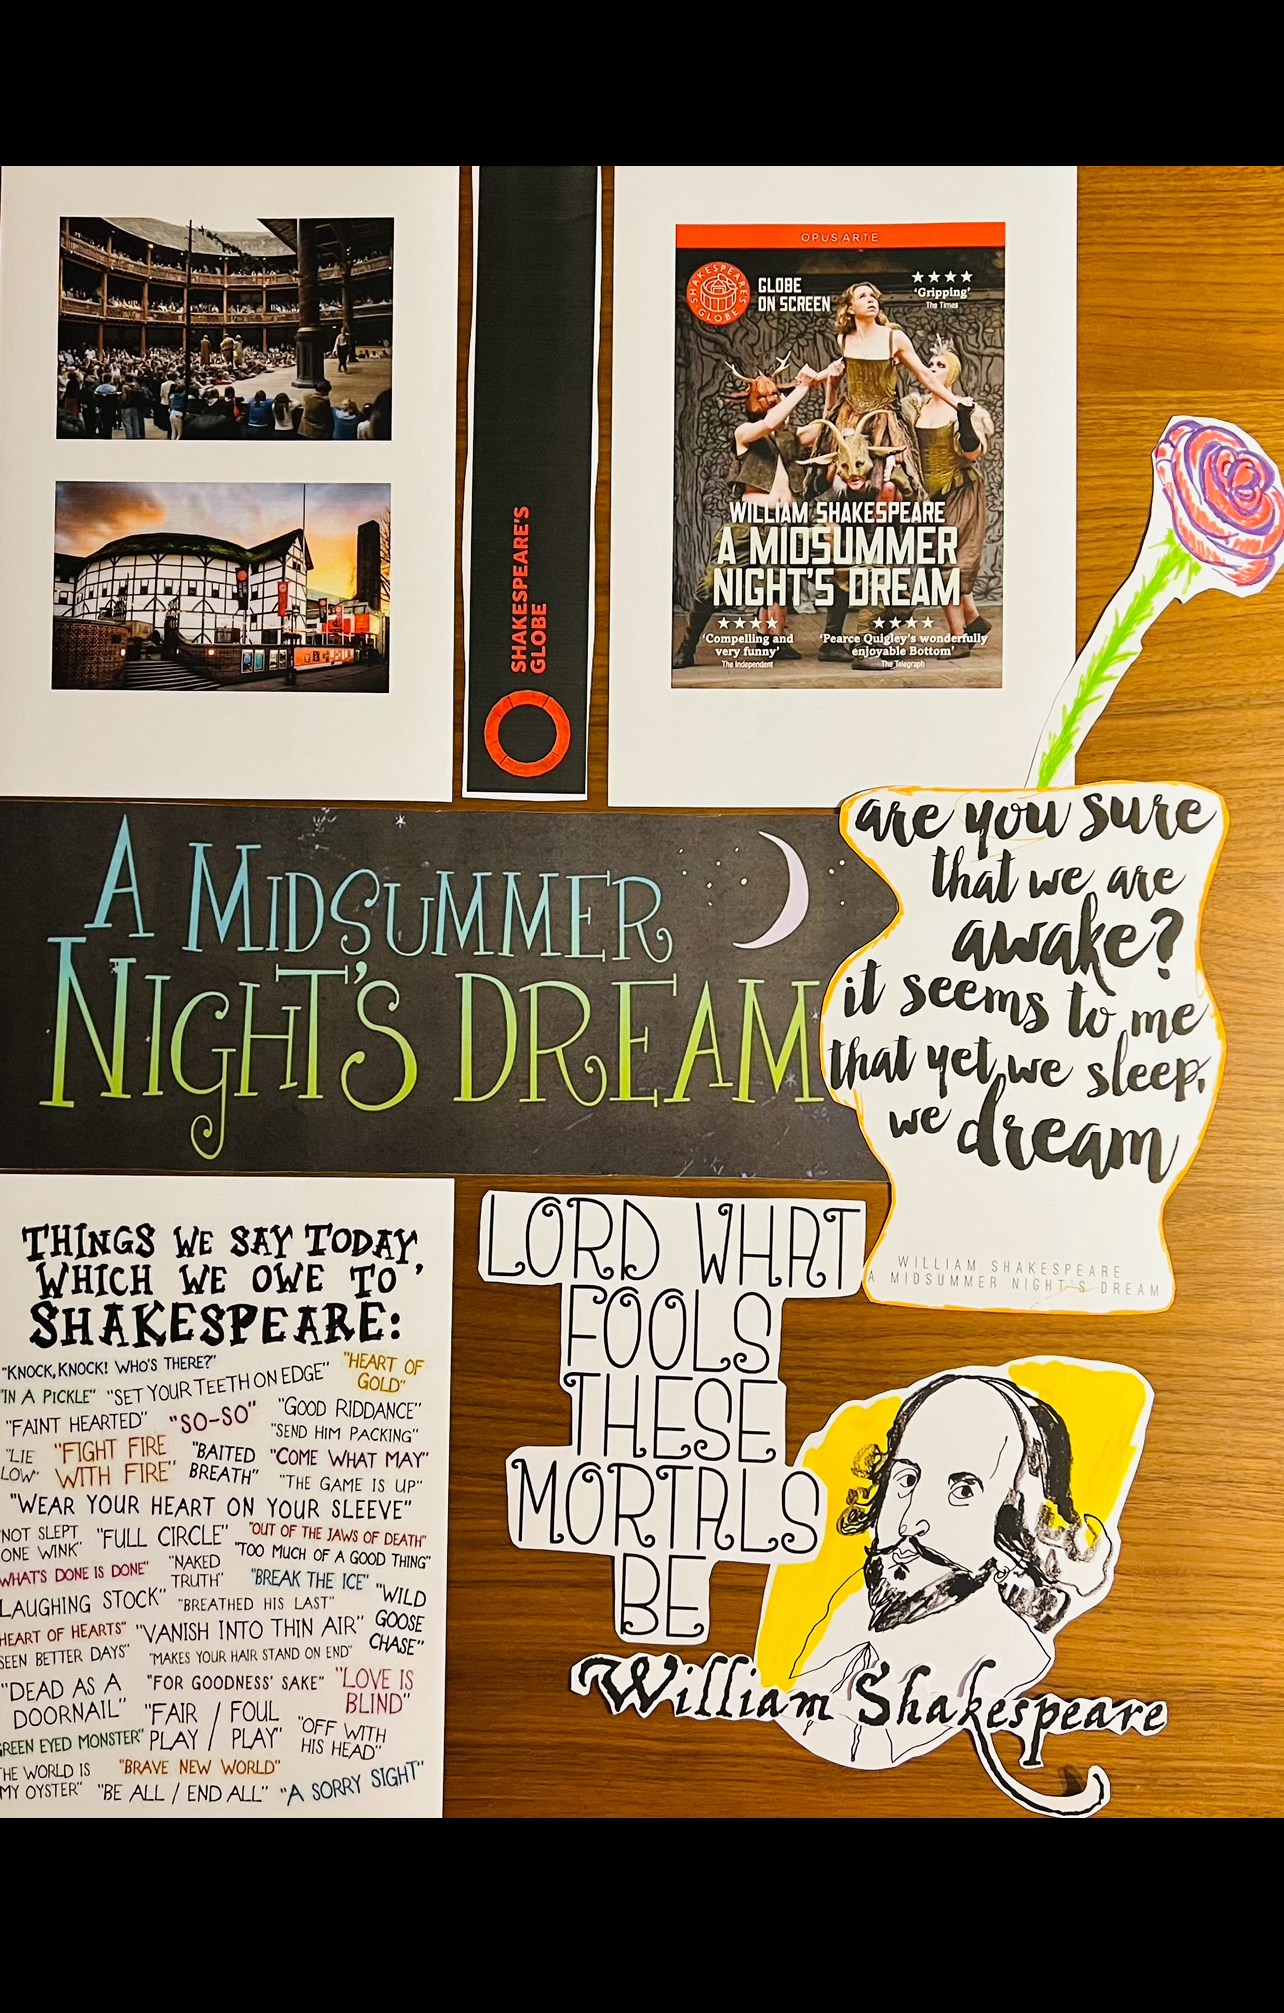 SHAKESPEARE'S
GLOBE
OPUS ARTE
SHAKESPEARE'S GLOBE
GLOBE
ON SCREEN
'Gripping'
The Times
WILLIAM SHAKESPEARE
A MIDSUMMER
NIGHT'S DREAM
'Compelling and
very funny'
The Independent
'Pearce Quigley's wonderfully
enjoyable Bottom'
The Telegraph
A MIDSUMMER
NIGHT'S DREAM
are you sure
that we are
awake?
it seems to me
that yet we sleep,
we dream
WILLIAM SHAKESPEARE
A MIDSUMMER NIGHT'S DREAM
THINGS WE SAY TODAY,
WHICH WE OWE TO
SHAKESPEARE:
"KNOCK, KNOCK! WHO'S THERE?"
"HEART OF
GOLD"
"IN A PICKLE" "SET YOUR TEETH ON EDGE"
"FAINT HEARTED" "SO-SO" "GOOD RIDDANCE"
"SEND HIM PACKING"
"LIE
LOW"
"FIGHT FIRE
WITH FIRE"
"BAITED
BREATH"
"COME WHAT MAY"
"THE GAME IS UP"
"WEAR YOUR HEART ON YOUR SLEEVE"
NOT SLEPT
ONE WINK"
"FULL CIRCLE" "OUT OF THE JAWS OF DEATH"
"TOO MUCH OF A GOOD THING"
WHAT'S DONE IS DONE" "NAKED
TRUTH"
"BREAK THE ICE"
LAUGHING STOCK" "BREATHED HIS LAST"
"WILD
GOOSE
CHASE"
HEART OF HEARTS" "VANISH INTO THIN AIR"
SEEN BETTER DAYS" "MAKES YOUR HAIR STAND ON END"
"DEAD AS A
DOORNAIL"
"FOR GOODNESS' SAKE" "LOVE IS
BLIND"
"FAIR / FOUL
PLAY / PLAY"
"OFF WITH
HIS HEAD"
GREEN EYED MONSTER"
THE WORLD IS
MY OYSTER"
"BRAVE NEW WORLD"
"BE ALL / END ALL" "A SORRY SIGHT"
LORD WHAT
FOOLS
THESE
MORTALS
BE
William Shakespeare